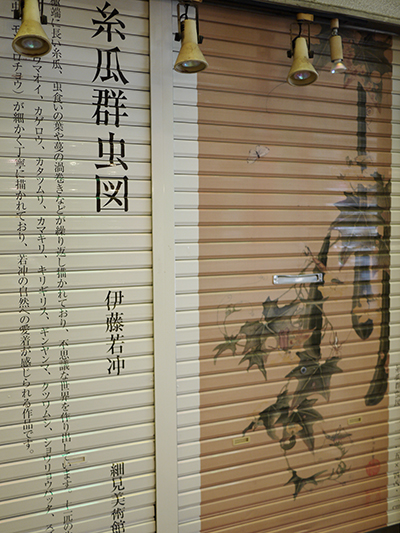 糸瓜群虫図
伊藤若冲
細見美術館
に長い糸瓜、虫食いの葉や蔓の渦巻きなどが繰り返し描かれており、不思議な世界を作り出しています。十一匹の
ウマオイ、カゲロウ、カタツムリ、カマキリ、キリギリス、キンヤンマ、クツワムシ、ショウリョウバッタ、ス
チョウ）が細かく丁寧に描かれており、若冲の自然への愛着が感じられる作品です。